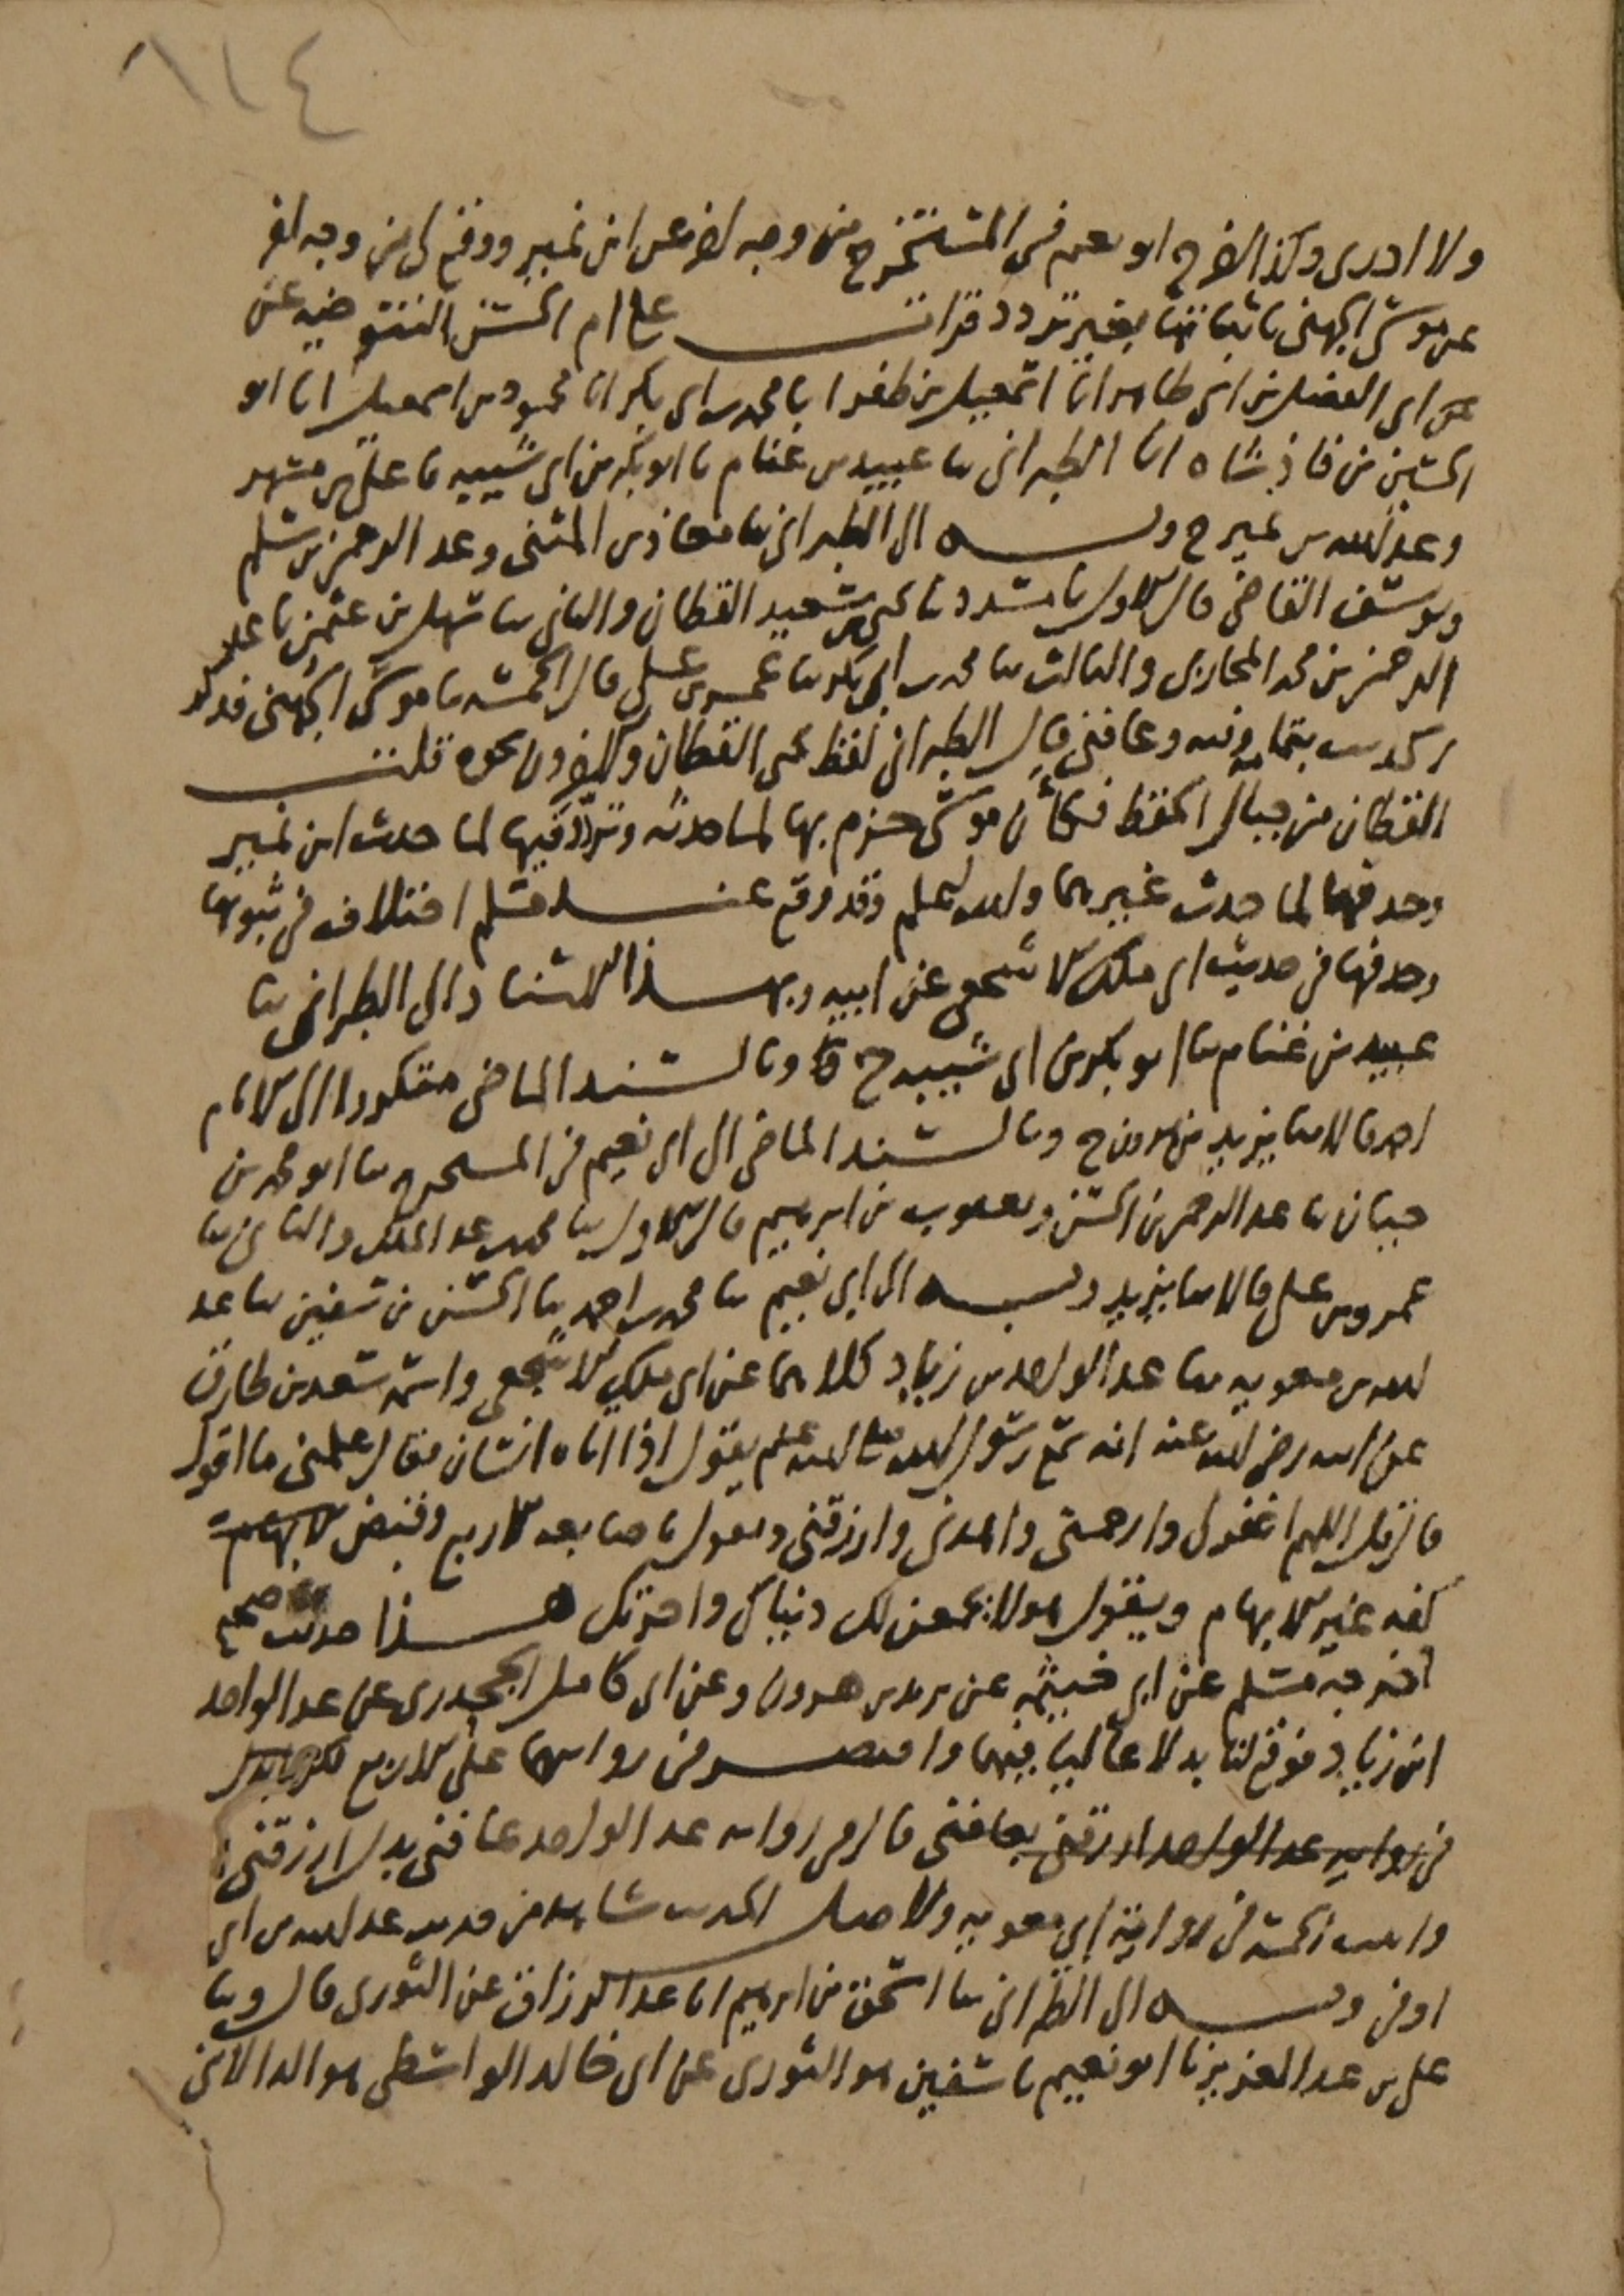 ٨١٤
ولا ادرى وكذا اخرج ابو نعيم فى المستخرج من وجه اخر عن ابن نمير ووقع لى من وجه اخر
عن موسى الجهنى باثباتها بغير تردد قرات على ام الحسن التنوخيه عن
عن ابى الفضل بن ابى طاهر انا اسمعيل بن ظفر انا محمد بن ابى بكر انا محمود بن اسمعيل انا ابو
الحسين بن فاذشاه انا الطبرانى ثنا عبيد بن غنام ثنا ابو بكر بن ابى شيبه ثنا على بن مسهر
وعبد الله بن نمير ح وبه الى الطبرانى ثنا معاذ بن المثنى وعبد الرحمن بن سلم
ويوسف القاضى قال الاول ثنا مسدد ثنا يحيى بن سعيد القطان والثانى ثنا سهل بن عثمن ثنا عبد
الرحمن بن محمد المحاربى والثالث ثنا محمد بن ابى بكر ثنا عمر بن على قال الخمسه ثنا موسى الجهنى فذكر
الحديث بتمامه وفيه وعافنى قال الطبرانى لفظ يحيى القطان والاخرون نحوه قلت
القطان من جبال الحفظ فكأن موسى جزم بها لما حدثه وتردد فيها لما حدث ابن نمير
وحذفها لما حدث غيرهما والله اعلم وقد وقع عند مسلم اختلاف فى ثبوتها
وحذفها فى حديث ابى ملك الاشجعى عن ابيه وبهذا الاسناد الى الطبرانى ثنا
عبيد بن غنام ثنا ابو بكر بن ابى شيبه ح وبالسند الماضى مذكورا الى الامام
احمد قالا ثنا يزيد بن هرون ح وبالسند الماضى الى ابى نعيم فى المستخرج ثنا ابو محمد بن
حيان ثنا عبد الرحمن بن الحسن ويعقوب بن ابرهيم قال الاول ثنا محمد بن عبد الملك والثانى ثنا
عمرو بن على قالا ثنا يزيد وبه الى ابى نعيم ثنا محمد بن احمد ثنا الحسن بن سفين ثنا عبد
الله بن معويه ثنا عبد الواحد بن زياد كلاهما عن ابى ملك الاشجعى واسمه سعد بن طارق
عن ابيه رضى الله عنه انه سمع رسول الله صلى الله عليه وسلم يقول اذا اتاه انسان فقال علمنى ما اقول
قال قل اللهم اغفر لى وارحمنى واهدنى وارزقنى ويقول باصابعه الاربع وقبض
كفه غير الابهام ويقول هولا يجمعن لك دنياك واخرتك هذا حديث صحيح
اخرجه مسلم عن ابى خيثمه عن يزيد بن هرون وعن ابى كامل الجحدرى عن عبد الواحد
ابن زياد فوقع لنا بدلا عاليا فيهما واقتصر فى روايتهما على الاربع
فى روايه عبد الواحد ارزقنى بعافنى قال فى روايه عبد الواحد عافنى بدل ارزقنى
واثبت الخمسه فى رواية ابى معويه ولاصل الحديث شاهد من حديث عبد الله بن ابى
اوفى وبه الى الطبرانى ثنا اسحق بن ابرهيم انا عبد الرزاق عن الثورى قال وثنا
على بن عبد العزيز ثنا ابو نعيم ثنا سفين هو الثورى عن ابى خالد الواسطى هو الدالانى